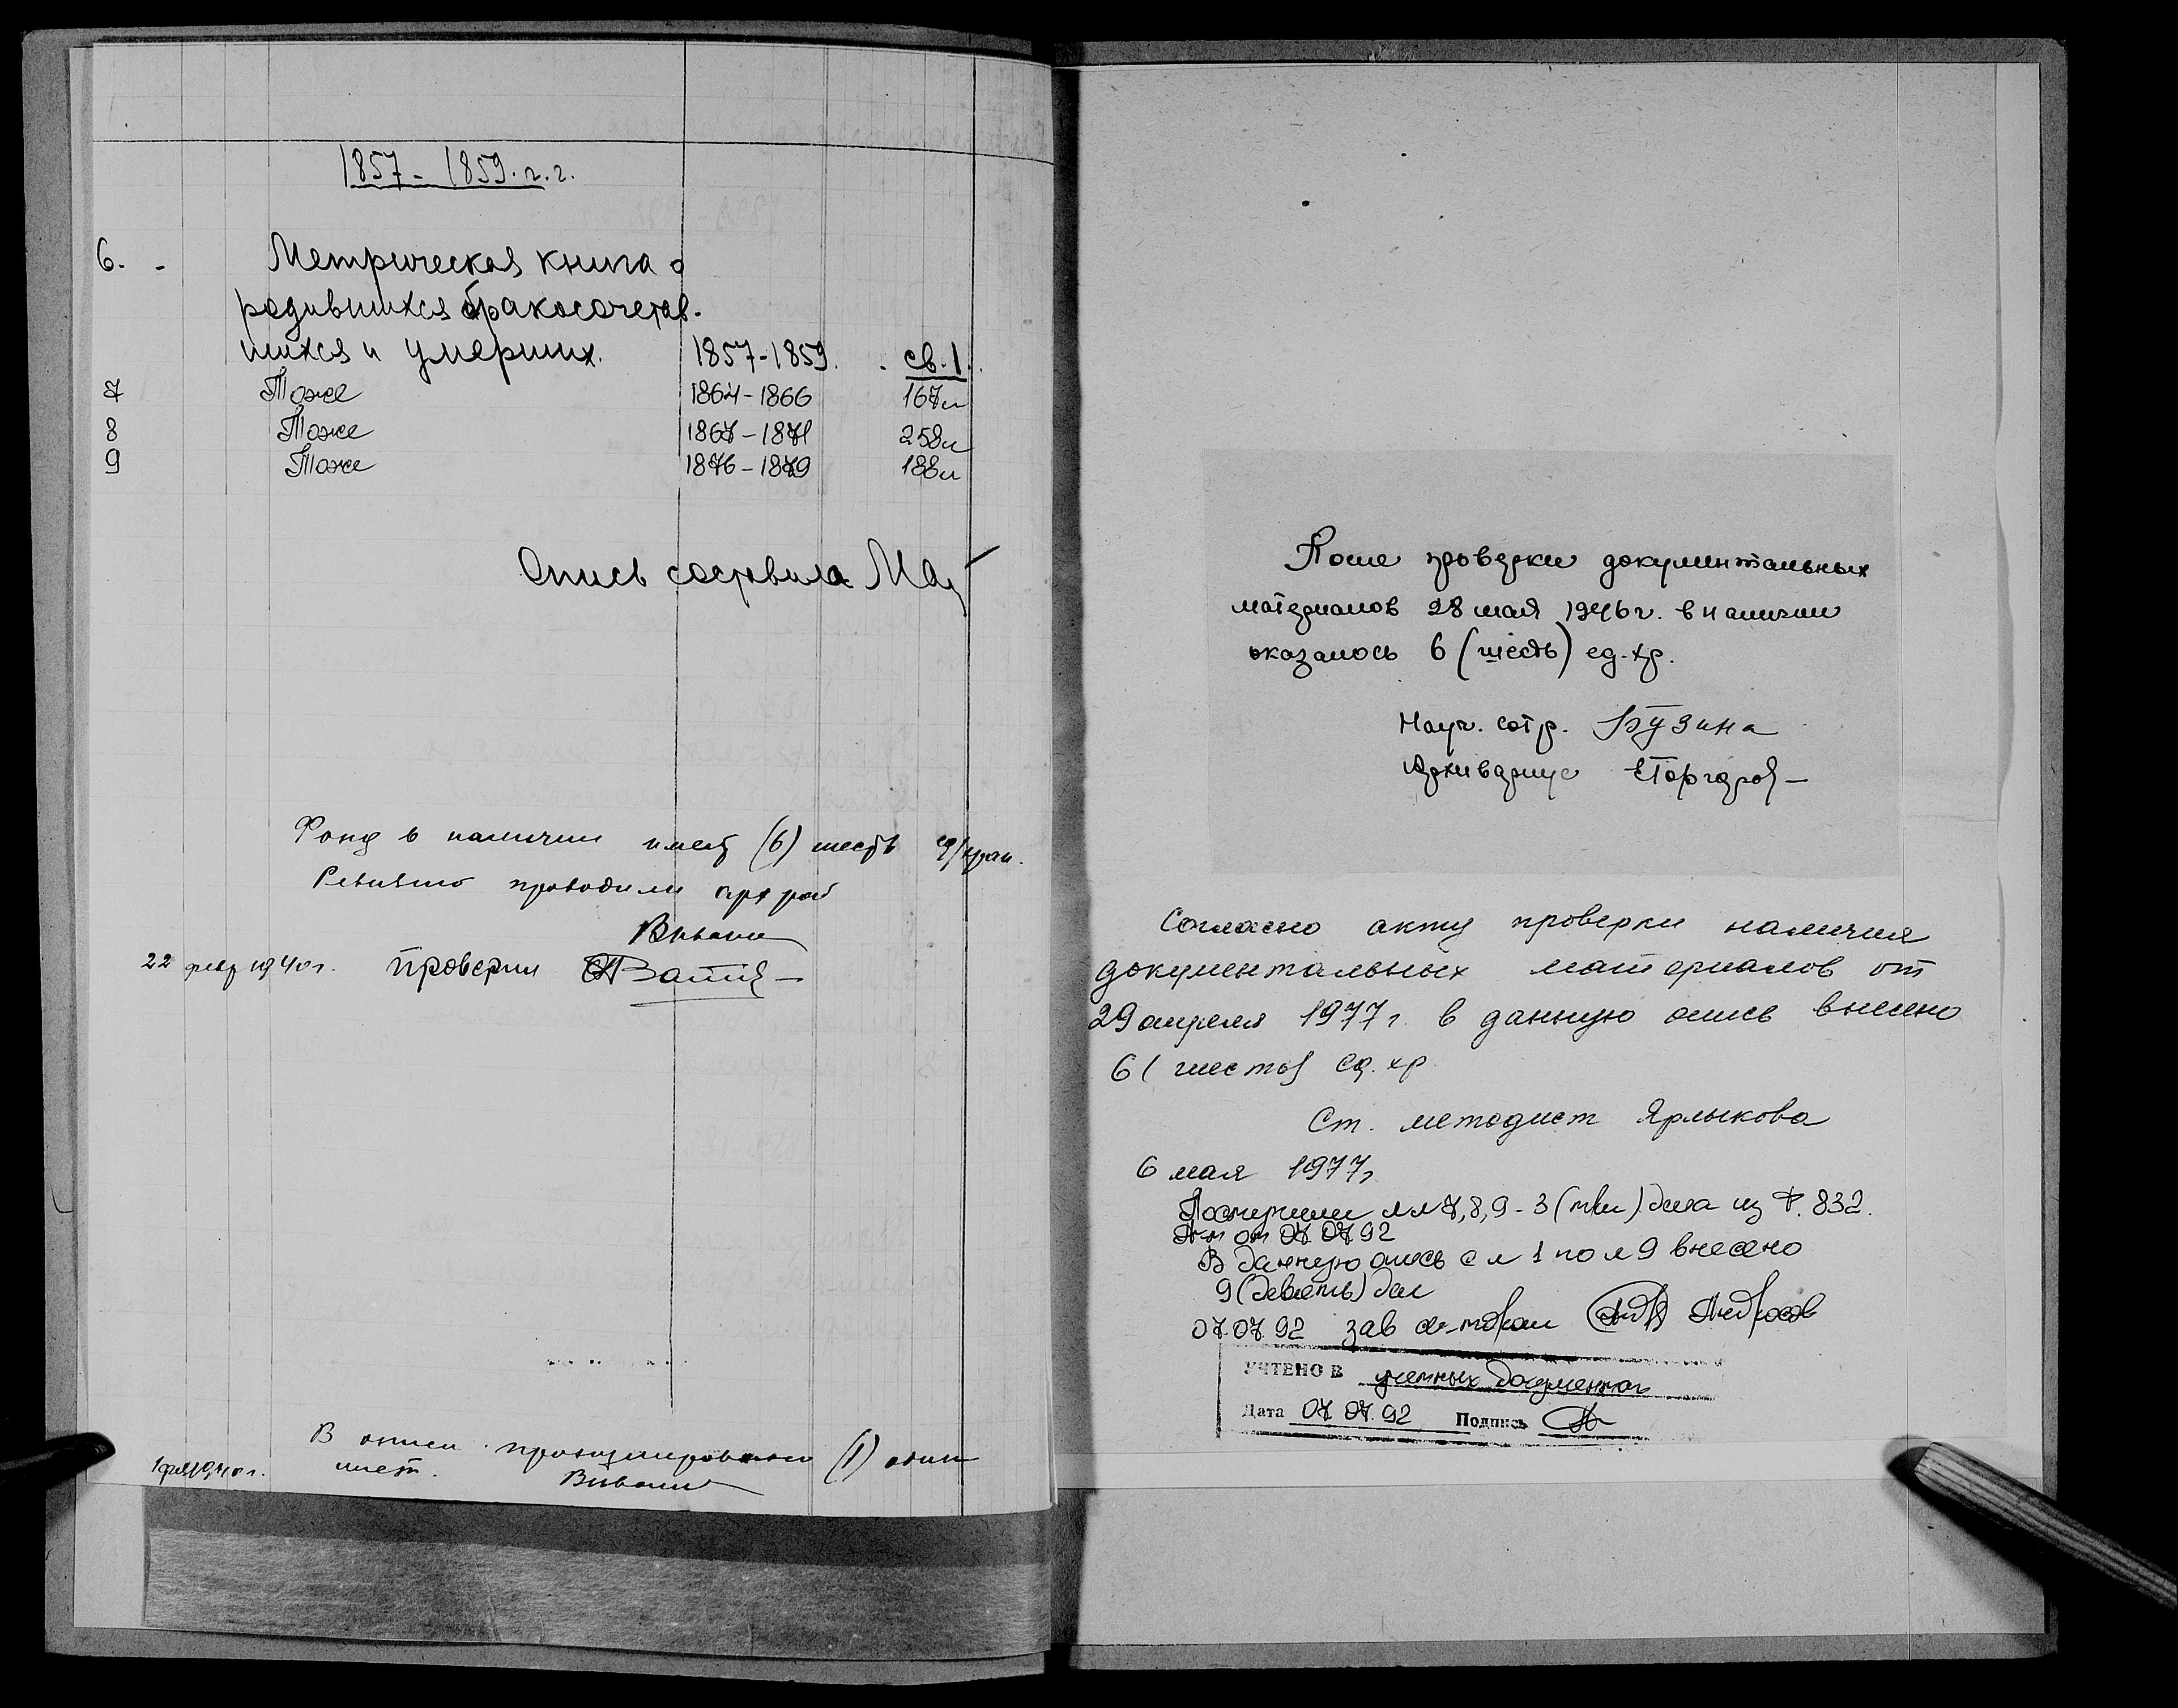 1857 - 1859. г. г.
6. - Метрическая книга о
родившихся бракосочетав-
шихся и умерших. 1857-1859. св. 1.
7 Тоже 1864-1866 167л
8 Тоже 1867-1871 258л
9 Тоже 1876-1879 188л
Опись составила
Фонд в наличии имеет (6) шесть ед/хран.
Ревизию проводили арх раб
22 февр 1940г. проверил
В описи пронумеровано (1) один
лист.
1940г.
После проверки документальных
материалов 28 мая 1946г. в наличии
оказалось 6 (шесть) ед. хр.
Науч. сотр. Бузина
Архивариус
Согласно акту проверки наличия
документальных материалов от
29 апреля 1977 г. в данную опись внесено
6 (шесть) ед. хр.
Ст. методист Ярлыкова
6 мая 1977г
Поступили 7, 8, 9 - 3 (три) дела из Ф. 832.
Акт от 07 07 92
В данную опись с л 1 по л 9 внесено
9 (девять) дел
07.07.92 зав Андросов
УЧТЕНО В учетных документах
Дата 07 07. 92 Подпись